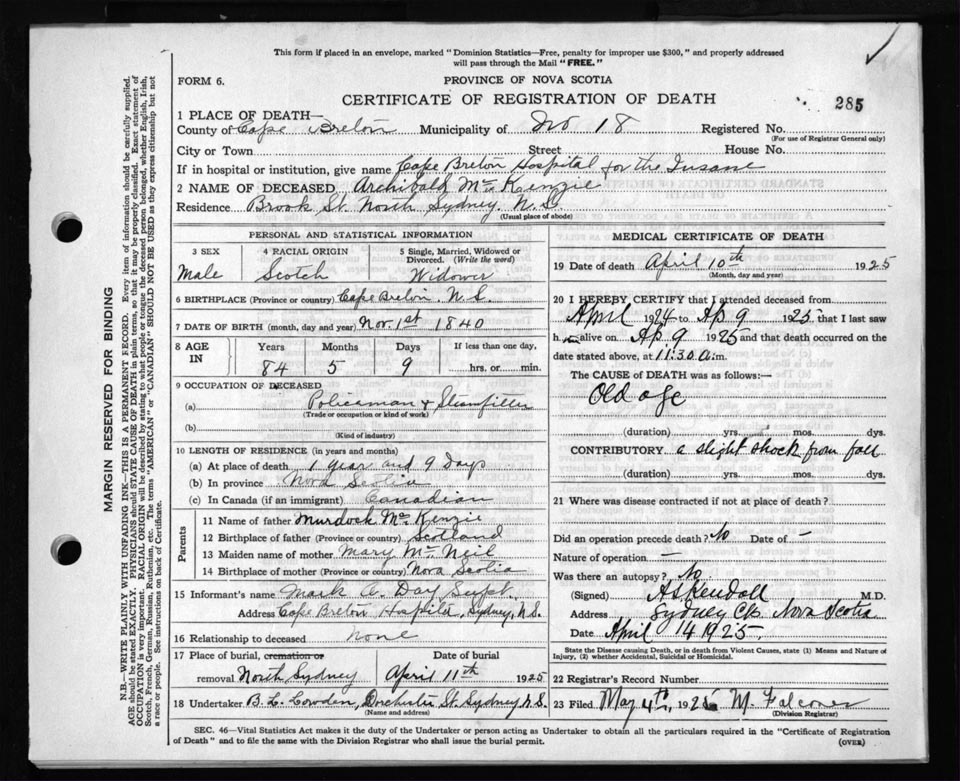 This form if placed in an envelope, marked "Dominion Statistics—Free, penalty for improper use $300," and properly addressed
will pass through the Mail "FREE."
FORM 6.
PROVINCE OF NOVA SCOTIA
CERTIFICATE OF REGISTRATION OF DEATH
285
1 PLACE OF DEATH—
County of Cape Breton Municipality of No 18 Registered No.
(For use of Registrar General only)
City or Town Street House No.
If in hospital or institution, give name Cape Breton Hospital for the Insane
2 NAME OF DECEASED Archibald McKenzie
Residence Brook St. North Sydney, N.S.
(Usual place of abode)
PERSONAL AND STATISTICAL INFORMATION
3 SEX 4 RACIAL ORIGIN 5 Single, Married, Widowed or
Divorced. (Write the word)
Male Scotch Widower
6 BIRTHPLACE (Province or country) Cape Breton, N.S.
7 DATE OF BIRTH (month, day and year) Nov. 1st 1840
8 AGE IN Years Months Days If less than one day,
84 5 9 hrs. or min.
9 OCCUPATION OF DECEASED
(a) Policeman &
(Trade or occupation or kind of work)
(b)
(Kind of industry)
10 LENGTH OF RESIDENCE (in years and months)
(a) At place of death 1 year and 9 Days
(b) In province Nova Scotia
(c) In Canada (if an immigrant) Canadian
Parents
11 Name of father Murdock McKenzie
12 Birthplace of father (Province or country) Scotland
13 Maiden name of mother Mary McNeil
14 Birthplace of mother (Province or country) Nova Scotia
15 Informant's name Mark A. Day Supt.
Address Cape Breton Hospital, Sydney, N.S.
16 Relationship to deceased none
17 Place of burial, cremation or Date of burial
removal North Sydney April 11th 1925
18 Undertaker B. L. Cowden, Dorchester St. Sydney N.S.
(Name and address)
MEDICAL CERTIFICATE OF DEATH
19 Date of death April 10th 1925
(Month, day and year)
20 I HEREBY CERTIFY that I attended deceased from
April 1924 to Ap 9 1925, that I last saw
h alive on Ap 9 1925 and that death occurred on the
date stated above, at 11:30 a.m.
The CAUSE of DEATH was as follows:—
Old age
(duration) yrs. mos. dys.
CONTRIBUTORY a slight shock from fall
(duration) yrs. mos. dys.
21 Where was disease contracted if not at place of death?
Did an operation precede death? No Date of –
Nature of operation –
Was there an autopsy? No
(Signed) A S Kendall M.D.
Address Sydney CB Nova Scotia
Date April 14 1925.
State the Disease causing Death, or in death from Violent Causes, state (1) Means and Nature of
Injury, (2) whether Accidental, Suicidal or Homicidal.
22 Registrar's Record Number
23 Filed May 4th, 1925 M. Falconer
(Division Registrar)
SEC. 46—Vital Statistics Act makes it the duty of the Undertaker or person acting as Undertaker to obtain all the particulars required in the "Certificate of Registration
of Death" and to file the same with the Division Registrar who shall issue the burial permit.
(OVER)
MARGIN RESERVED FOR BINDING
N.B.—WRITE PLAINLY WITH UNFADING INK—THIS IS A PERMANENT RECORD. Every item of information should be carefully supplied.
AGE should be stated EXACTLY. PHYSICIANS should STATE CAUSE OF DEATH in plain terms, so that it may be properly classified. Exact statement of
OCCUPATION is very important. RACIAL ORIGIN will be described by stating to what people or tongue the deceased person belonged, whether English, Irish,
Scotch, French, German, Russian, Ruthenian, etc. The terms "AMERICAN" or "CANADIAN" SHOULD NOT BE USED as they express citizenship but not
a race or people. See instructions on back of Certificate.